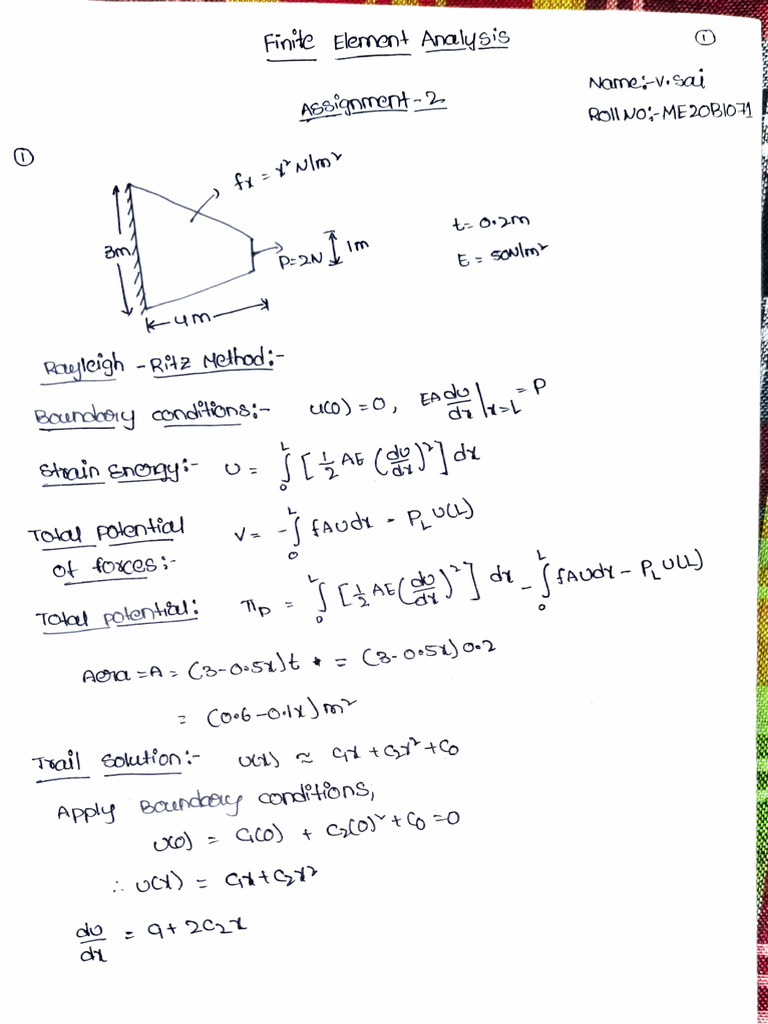 Finite Element Analysis
①
Assignment-2
Name:-V.Sai
Roll No:-ME20B1071
①
fx = x² N/m²
3m
P=2N
1m
4m
t=0.2m
E = 50N/m²
Rayleigh - Ritz Method:-
Boundory conditions:- u(0)=0, EA du/dx |x=L = P
Strain energy:- U = ∫₀ᴸ [½ AE (du/dx)²] dx
Total potential of forces:- V = -∫₀ᴸ fAudx - P_L U(L)
Total potential: Πp = ∫₀ᴸ [½ AE (du/dx)²] dx - ∫₀ᴸ fAudx - P_L U(L)
Aera = A = (3-0.5x)t = (3-0.5x)0.2
= (0.6-0.1x)m²
Trail solution:- u(x) ≈ C₁x + C₂x² + C₀
Apply Boundory conditions,
u(0) = C₁(0) + C₂(0)² + C₀ = 0
∴ u(x) = C₁x + C₂x²
du/dx = C₁ + 2C₂x